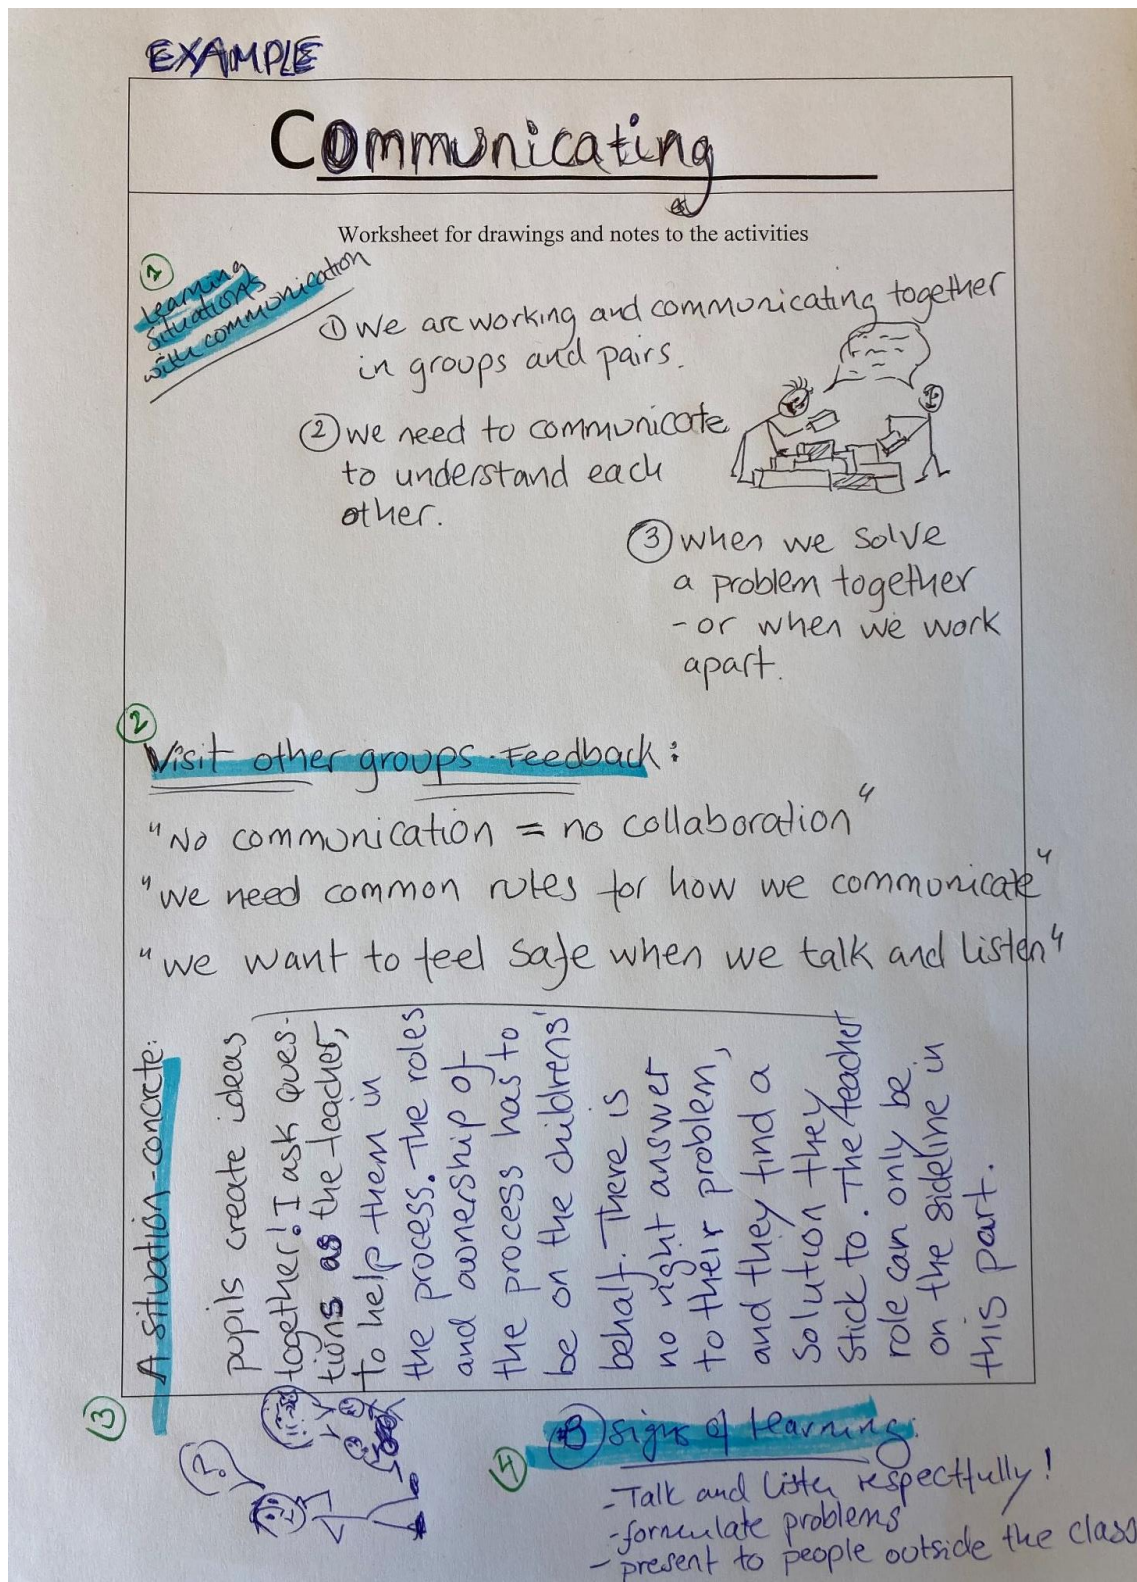 EXAMPLE
Communicating
Worksheet for drawings and notes to the activities
1
Learning
situations
with communication
① We are working and communicating together
in groups and pairs.
② we need to communicate
to understand each
other.
③ when we solve
a problem together
- or when we work
apart.
2
Visit other groups. Feedback:
"No communication = no collaboration"
"we need common rules for how we communicate"
"we want to feel safe when we talk and listen"
3
A situation - concrete:
pupils create ideas
together! I ask ques-
tions as the teacher,
to help them in
the process. The roles
and ownership of
the process has to
be on the childrens'
behalf. There is
no right answer
to their problem,
and they find a
solution they
stick to. The teacher
role can only be
on the sideline in
this part.
?
4
3 signs of learning:
- Talk and listen respectfully!
- formulate problems
- present to people outside the class